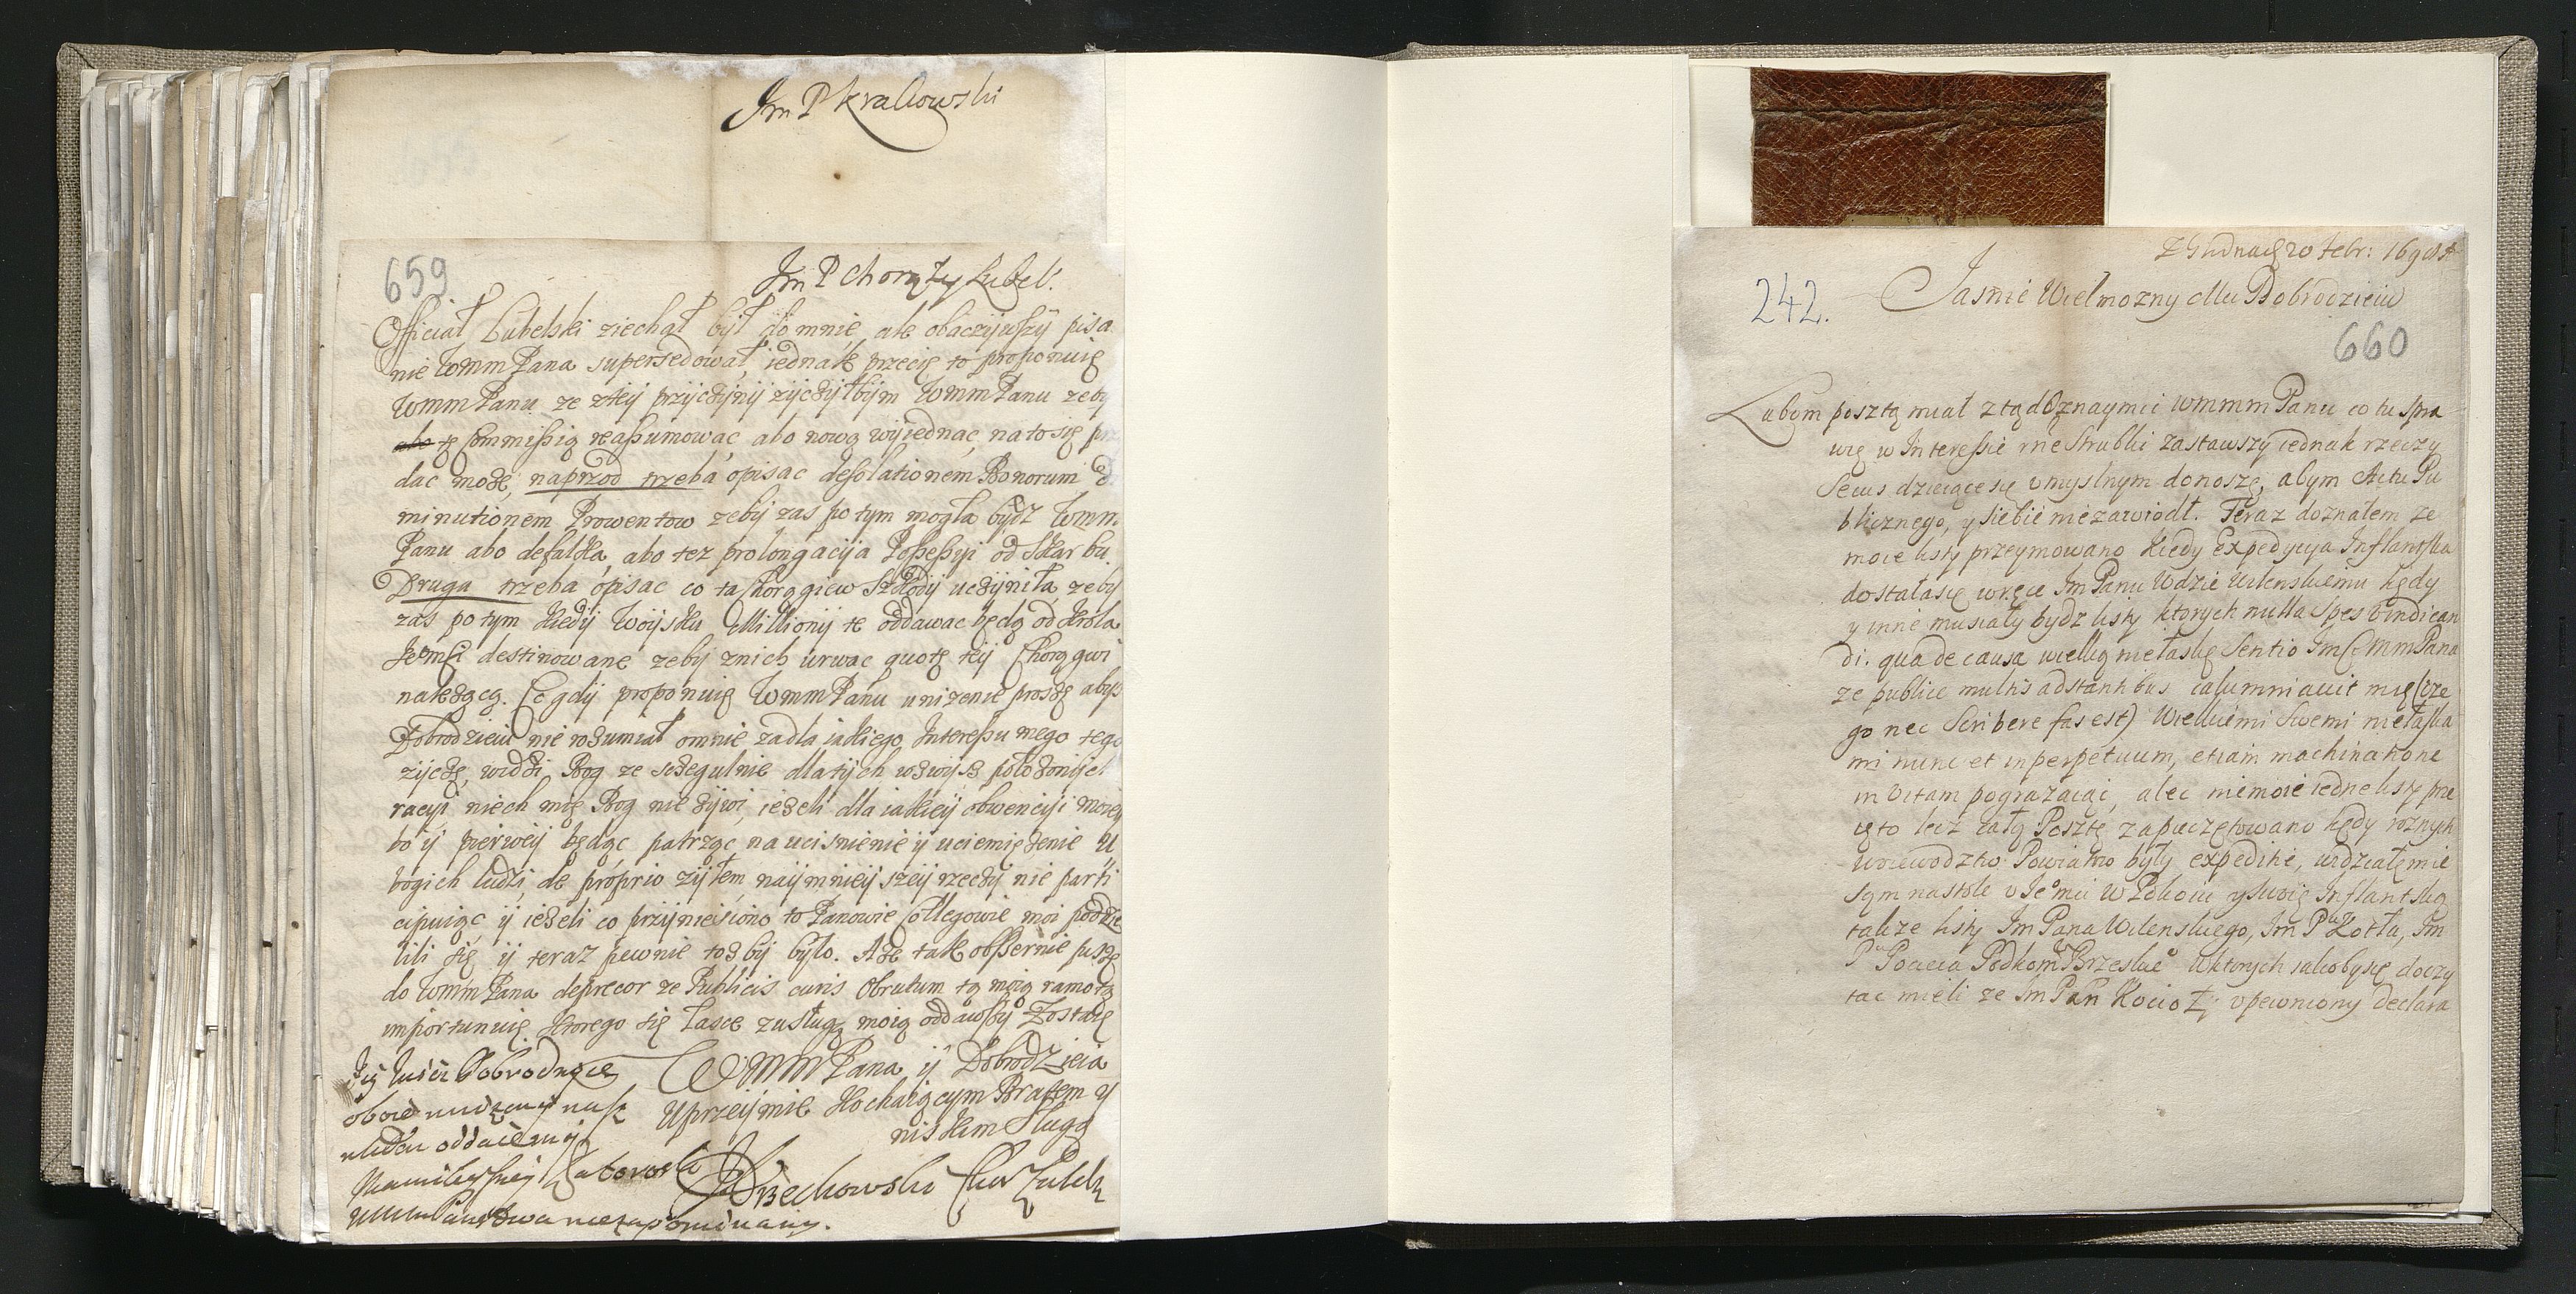 Jm P Krakowski
659
Jm P Chorązy Lubel:
Officiał Lubelski ziechał był do mnie, ale obaczÿwszÿ pisa
nie WmmPana supersedował, iednak przecię to proponuię
WmmPanu ze zteÿ przÿczÿnÿ zÿczÿłbÿm WmmPanu zebÿ
abo tę Commissią reassumować, abo nową wÿiednac, na to się
dac może, naprzod trzeba opisac desolationem Bonorum
minutionem Prowentow zebÿ zas potym mogła bÿdź Wmm
Panu abo defalka, abo tez prolongacÿa Possessÿi od Skarbu.
Druga trzeba opisac co ta Chorągiew Szkodÿ uczÿniła, zebÿ
zas potym kiedÿ Woÿsku Millionÿ te oddawac będą od Krola
Jemci destinowane zebÿ znich urwac quotę teÿ Chorągwi
należącą. Co gdÿ proponuię WmmPanu unizenie proszę abÿs
Dobrodzieiu nie rozumiał omnie zadla iakiego Interessu mego tego
zÿczę, widzi Bog ze szczegulnie dla tÿch wzwÿsz położonÿch
racÿi, niech mię Bog nie żÿwi, ieżeli dla iakieÿ obwencÿi moieÿ
bo ÿ pierweÿ będąc patrząc na ucisnienie ÿ uciemiężenie U
bogich ludzi, de proprio zÿłem, naÿmnieÿszeÿ rzeczÿ nie parti
cipuiąc ÿ ieżeli co przÿniesiono to Panowie Collegowie moi podzie
lili się ÿ teraz pewnie tożbÿ było. Aże tak obszernie piszę
do WmmPana deprecor ze Publicis curis Obrutum tą moią ramotą
importunuię ktorego się łasce zusługą moią oddawszÿ Zostaię
WmmPana ÿ Dobrodzieia
Uprzeÿmie Kochaiącym Bratem y
niskim Sługą
Jeÿ Mości Dobrodzieice
oboie nudzony nasz
ukłon oddaiemÿ
WmmPanstwa niezapominamy.
Z Grodna 20 Febr: 169
242.
Jasnie Wielmozny Mci Dobrodzieiu
660
Lubom posztą miał ztąd Oznaymic WmmmPanu co tu spra
wię w Interessie me Strubki zastawszy iednak rzeczy
Secus dzieiące się vmyslnym donoszę, abym Actu Pu
blicznego, y siebie niezawiodł. Teraz doznałem ze
moie listy przeymowano kiedy Expedycya Inflantska
dostałasię wręce Jm Panu Wdzie Wilenskiemu kędy
y inne musiały bydz listy ktorych nulla spes vindican
di. qua de causa wielką niełaskę Sentio JmCi MmPana
ze publice multis adstantibus calumniavit mię (cze
go nec Scribere fas est) Wielkiemi Swemi niełaska
mi nunc et inperpetuum, etiam machinatione
in Vitam pograzaiąc, alec niemoie iedne listy prze
ięto lecz całą Posztę zapieczętowano kędy roznych
Woiewodztw Powiatow były expeditie, widziałemie
sąm nastole v Je°mci w Pokoiu y swoię Inflantską
takze listy Jm Pana Wilenskiego, Jm Pa Kotła, Jm
Pa Pocieia Podkomr Brzeskie° wktorych iakobysię doczy
tac mieli ze Jm Pan Kocioł, vpewniony declara